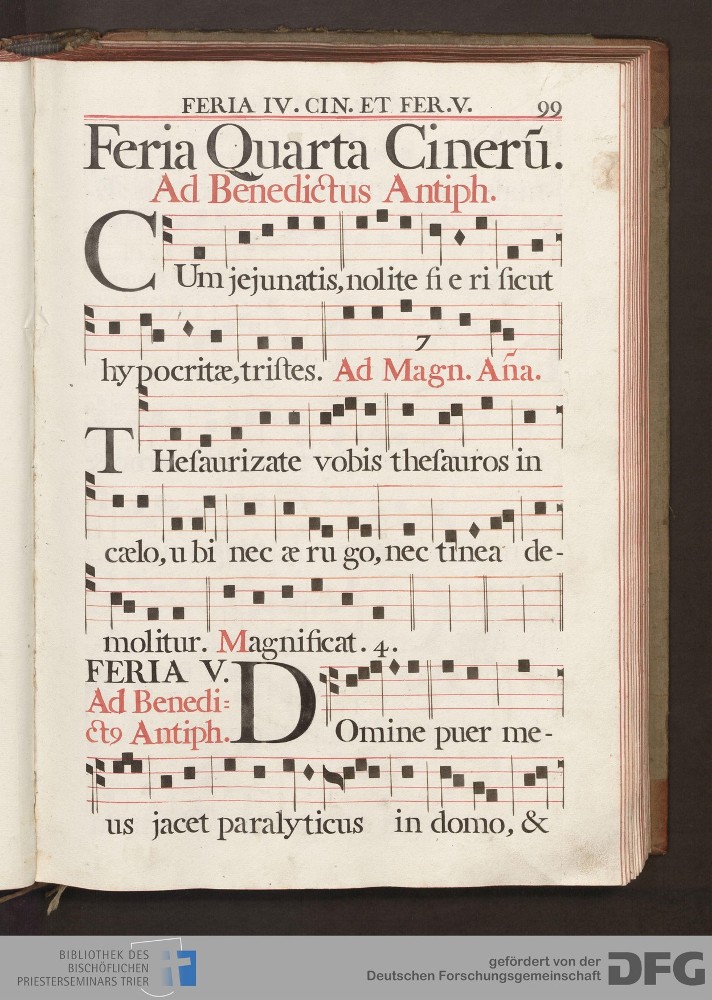 FERIA IV. CIN. ET FER. V. 99
Feria Quarta Cinerū.
Ad Benedictus Antiph.
CUm jejunatis, nolite fi e ri ſicut
7
hypocritæ, triſtes. Ad Magn. Aña.
THeſaurizate vobis theſauros in
cælo, u bi nec æ ru go, nec tinea de-
molitur. Magnificat. 4.
FERIA V.
Ad Benedi:
ctꝯ Antiph.
DOmine puer me-
us jacet paralyticus in domo, &
BIBLIOTHEK DES
BISCHÖFLICHEN
PRIESTERSEMINARS TRIER
gefördert von der
Deutschen Forschungsgemeinschaft
DFG